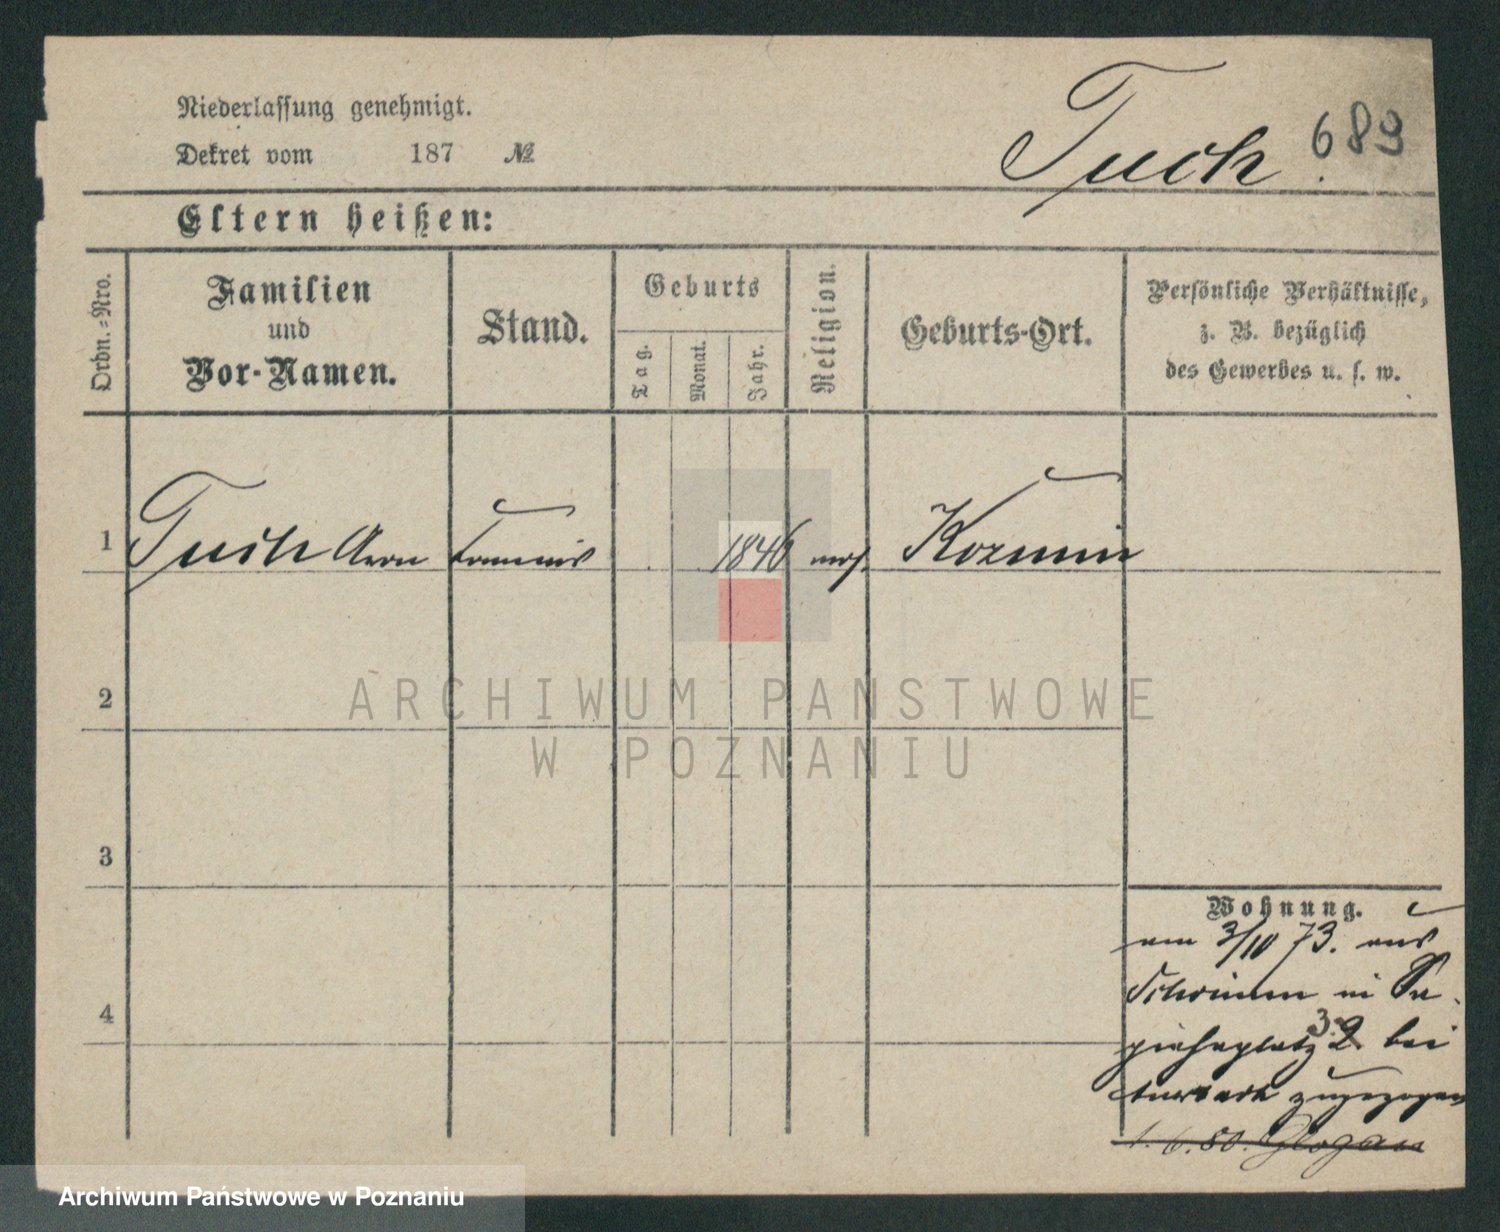 Niederlassung genehmigt.
Dekret vom 187 №
Tuch. 689
Eltern heißen:
Ordn.-Nro.
Familien
und
Vor-Namen.
Stand.
Geburts
Tag.
Monat.
Jahr.
Religion.
Geburts-Ort.
Persönliche Verhältnisse,
z. B. bezüglich
des Gewerbes u. s. w.
1 Tuch Aron Commis 1846 mos. Kozmin
2
3
4
Wohnung.
am 3/10 73. aus
Schrimm in Sa-
piehaplatz 3. 2 bei
zugezogen
1.6.80. Glogau
ARCHIWUM PAŃSTWOWE
W POZNANIU
Archiwum Państwowe w Poznaniu